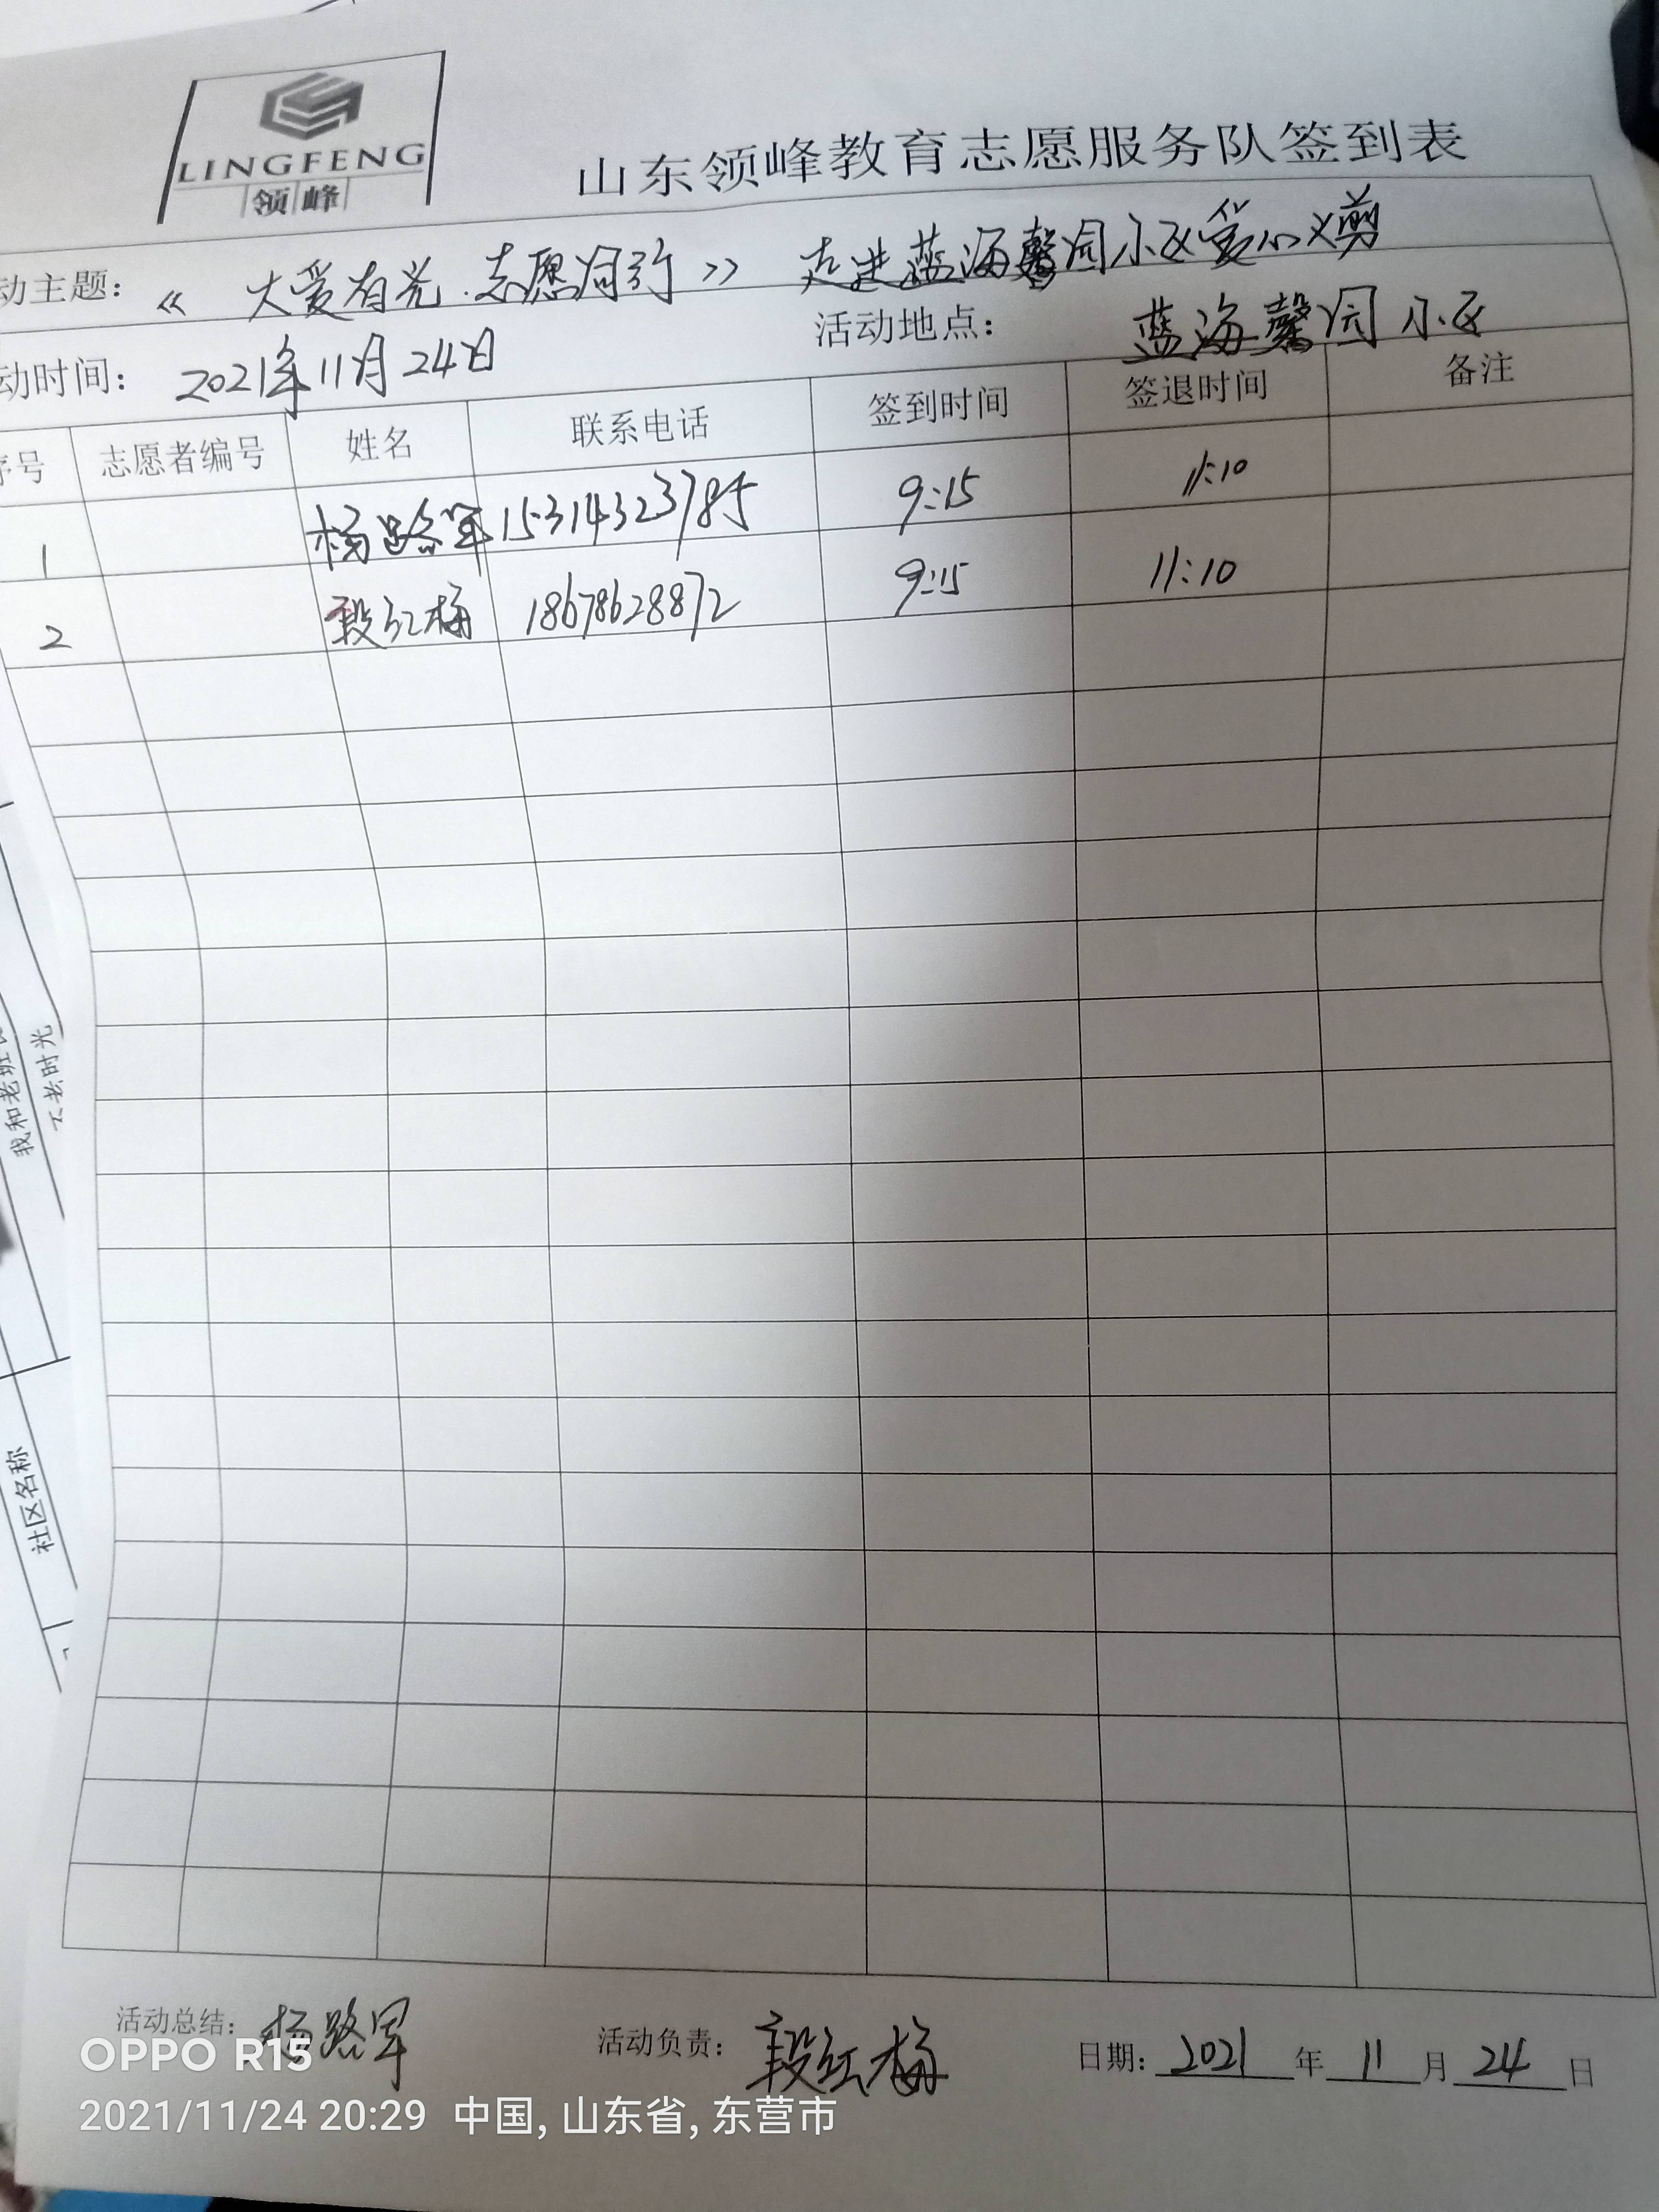 LINGFENG
领峰
山东领峰教育志愿服务队签到表
动主题： 《大爱有光.志愿同行》 走进蓝海馨园小区爱心义剪
动时间： 2021年11月24日 活动地点： 蓝海馨园小区
序号 志愿者编号 姓名 联系电话 签到时间 签退时间 备注
1 杨路军 15314323785 9:15 11:10
2 段红梅 18678628872 9:15 11:10
我和老班
不老时光
社区名称
活动总结： 杨路军 活动负责： 段红梅 日期： 2021 年 11 月 24 日
OPPO R15
2021/11/24 20:29 中国, 山东省, 东营市